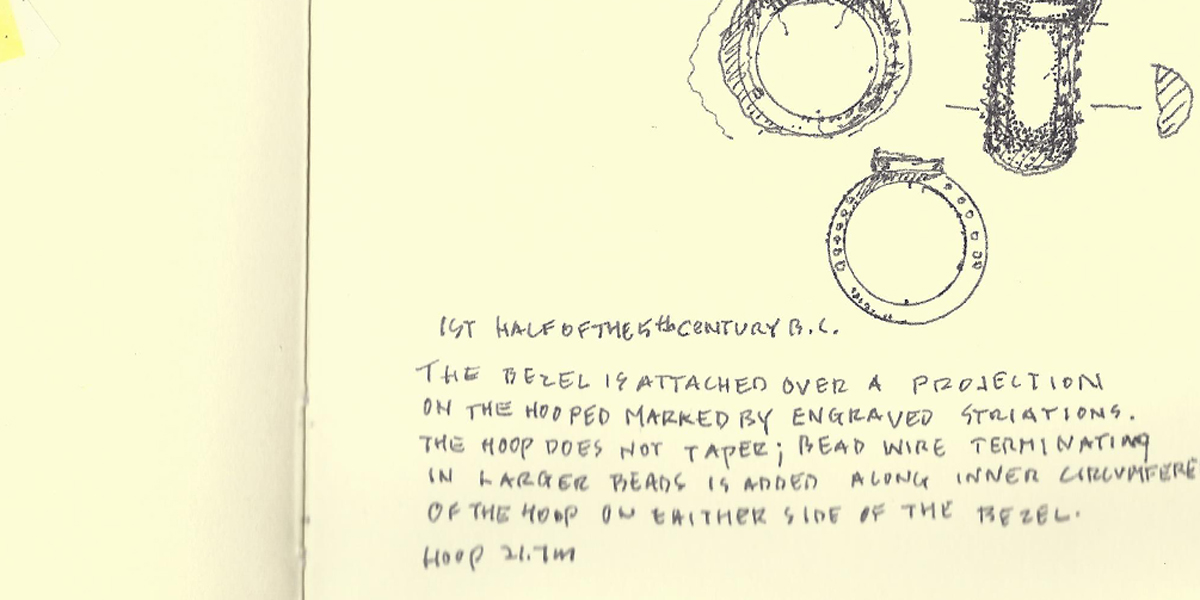 1ST HALF OF THE 5th CENTURY B.C.
THE BEZEL IS ATTACHED OVER A PROJECTION
ON THE HOOPED MARKED BY ENGRAVED STRIATIONS.
THE HOOP DOES NOT TAPER; BEAD WIRE TERMINATING
IN LARGER BEADS IS ADDED ALONG INNER CIRCUMFERE
OF THE HOOP ON EAITHER SIDE OF THE BEZEL.
HOOP 21.7m